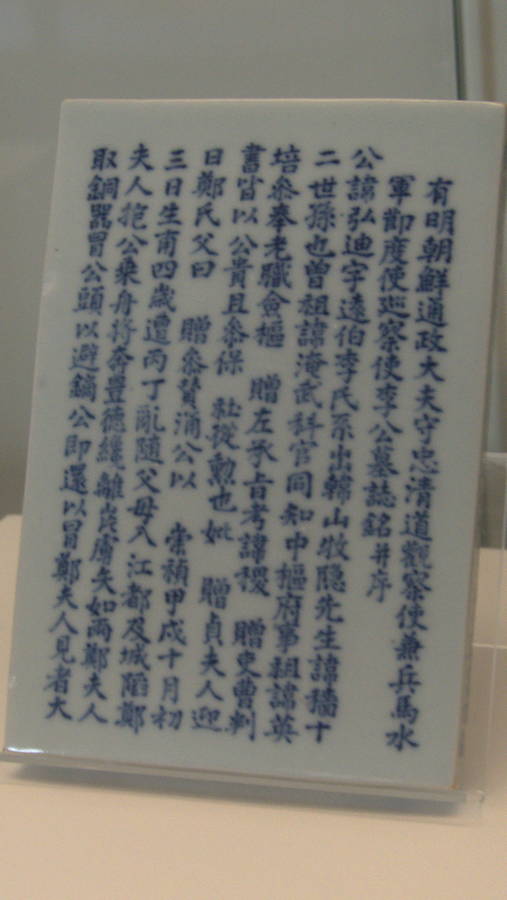 有明朝鮮通政大夫守忠清道觀察使兼兵馬水
軍節度使巡察使李公墓誌銘并序
公諱弘迪字遠伯李氏系出韓山牧隐先生諱穡十
二世孫也曾祖諱淹武科官同知中樞府事祖諱英
培叅奉老職僉樞 贈左承旨考諱稷 贈吏曹判
書皆以公貴且叅保 社從勲也妣 贈貞夫人迎
日鄭氏父曰 贈叅賛涌公以 崇禎甲戌十月初
三日生甫四歳遭丙丁亂随父母入江都及城陷鄭
夫人抱公乗舟将奔豊德纔離岸虜矢如雨鄭夫人
取銅器冒公頭以避鏑公即還以冒鄭夫人見者大